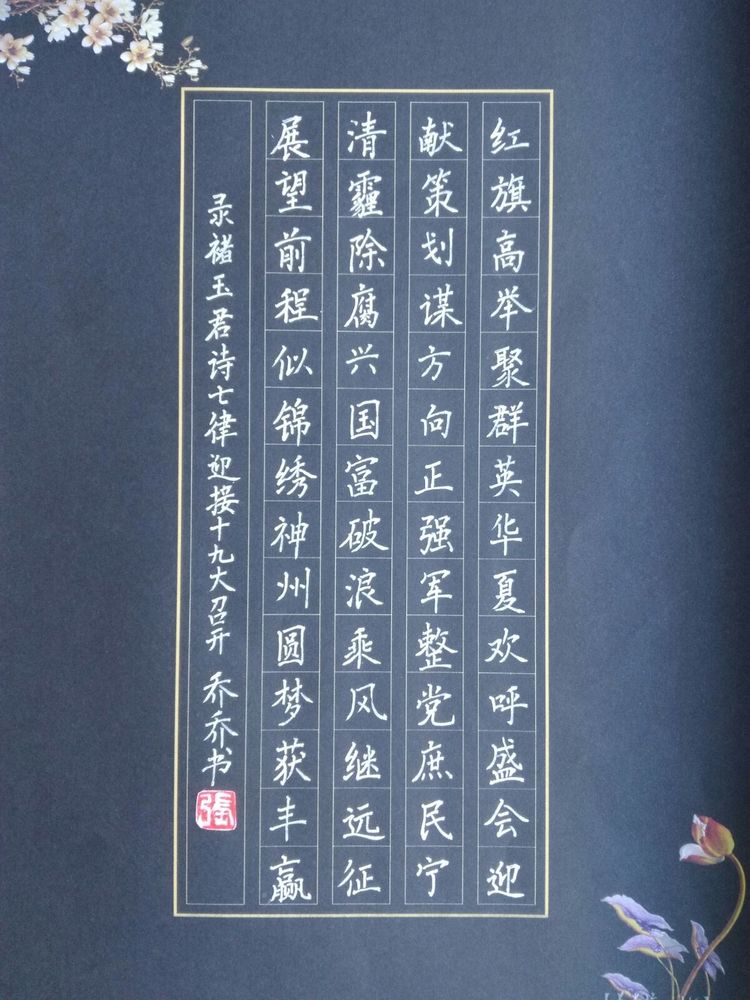 红旗高举聚群英华夏欢呼盛会迎
献策划谋方向正强军整党庶民宁
清霾除腐兴国富破浪乘风继远征
展望前程似锦绣神州圆梦获丰赢
录褚玉君诗七律迎接十九大召开 乔乔书
張